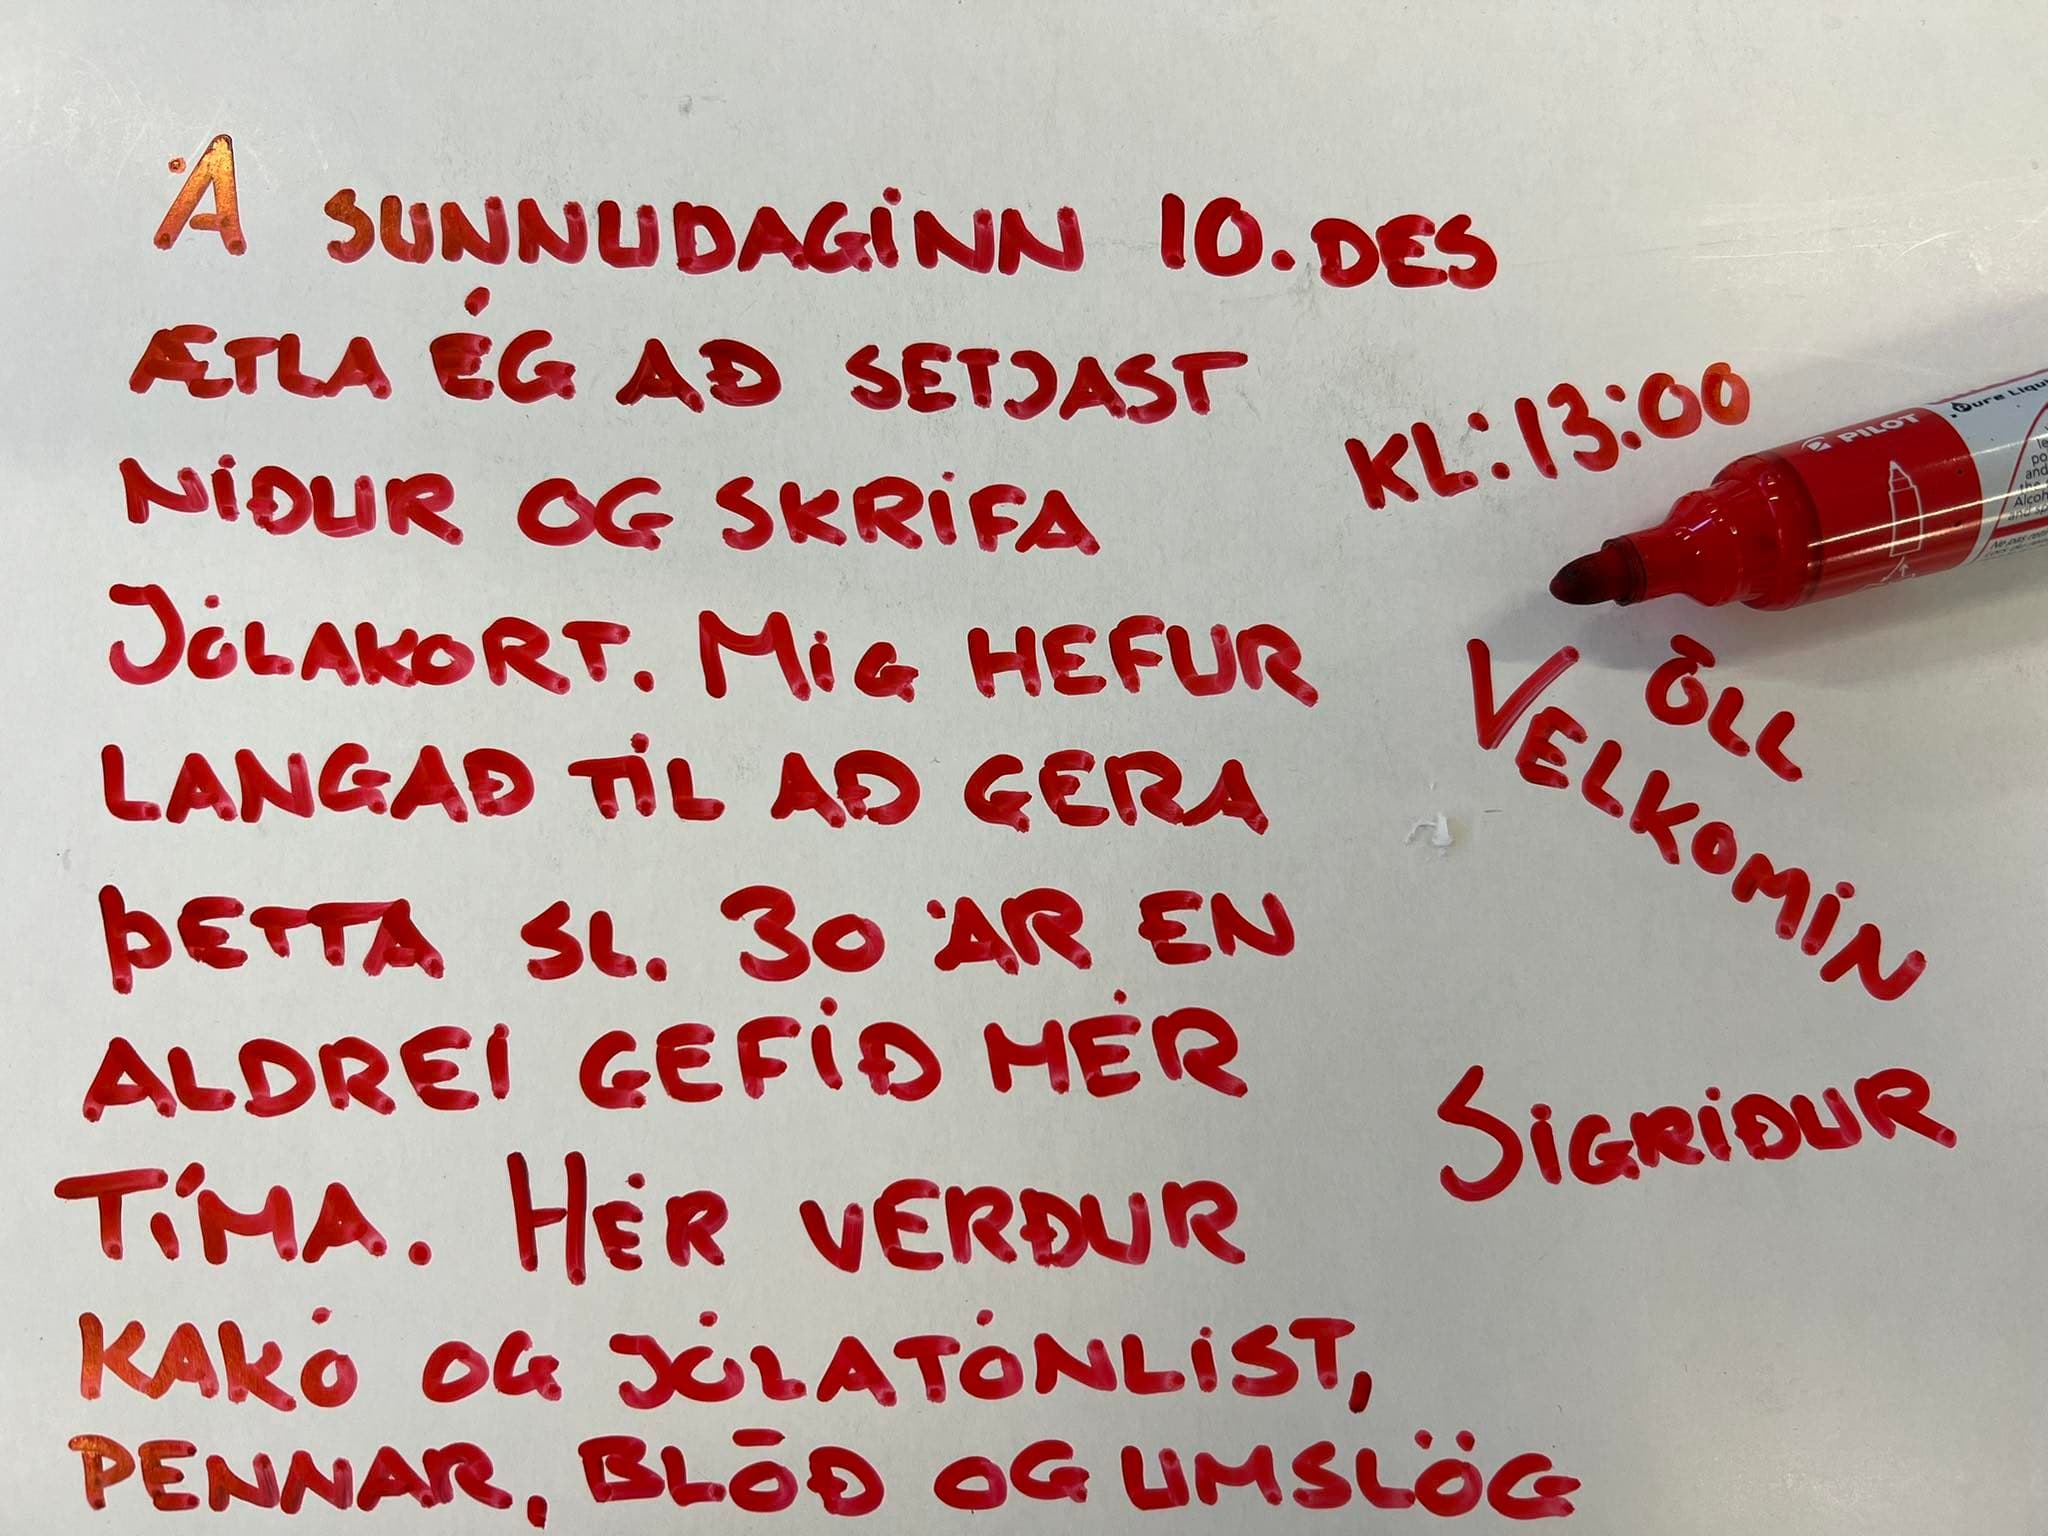 Á SUNNUDAGINN 10. DES
ÆTLA ÉG AÐ SETJAST
NIÐUR OG SKRIFA
KL: 13:00
JÓLAKORT. MIG HEFUR
LANGAÐ TIL AÐ GERA
ÞETTA SL. 30 ÁR EN
ALDREI GEFIÐ MÉR
TÍMA. HÉR VERÐUR
KAKÓ OG JÓLATÓNLIST,
PENNAR, BLÖÐ OG UMSLÖG
ÖLL
VELKOMIN
SIGRÍÐUR
PILOT